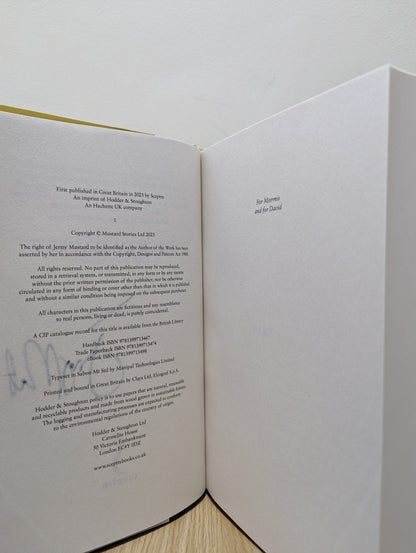 First published in Great Britain in 2023 by Sceptre
An imprint of Hodder & Stoughton
An Hachette UK company
1
Copyright © Mustard Stories Ltd 2023
The right of Jenny Mustard to be identified as the Author of the Work has been
asserted by her in accordance with the Copyright, Designs and Patents Act 1988.
All rights reserved. No part of this publication may be reproduced,
stored in a retrieval system, or transmitted, in any form or by any means
without the prior written permission of the publisher, nor be otherwise
circulated in any form of binding or cover other than that in which it is published
and without a similar condition being imposed on the subsequent purchaser.
All characters in this publication are fictitious and any resemblance
to real persons, living or dead, is purely coincidental.
A CIP catalogue record for this title is available from the British Library
Hardback ISBN 9781399713467
Trade Paperback ISBN 9781399713474
eBook ISBN 9781399713498
Typeset in Sabon MT Std by Manipal Technologies Limited
Printed and bound in Great Britain by Clays Ltd, Elcograf S.p.A.
Hodder & Stoughton policy is to use papers that are natural, renewable
and recyclable products and made from wood grown in sustainable forests.
The logging and manufacturing processes are expected to conform
to the environmental regulations of the country of origin.
Hodder & Stoughton Ltd
Carmelite House
50 Victoria Embankment
London EC4Y 0DZ
www.sceptrebooks.co.uk
For Mormo
and for David